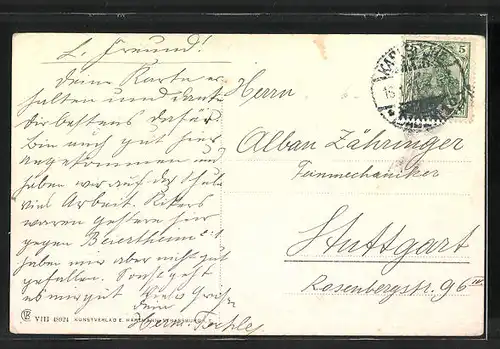 L. Freund!
Deine Karte er-
halten und danke
dir bestens dafür.
Bin auch gut hier
angekommen und
haben wir auf der Schule
viel Arbeit. Kikers
waren gestern hier
gegen Beiertheim
haben mir aber nicht gut
gefallen. Sonst geht
es mir gut
dein
Herm.
Herrn
Alban Zähringer
Feinmechaniker
Stuttgart
Rosenbergstr. 96
5
VIII KUNSTVERLAG E.